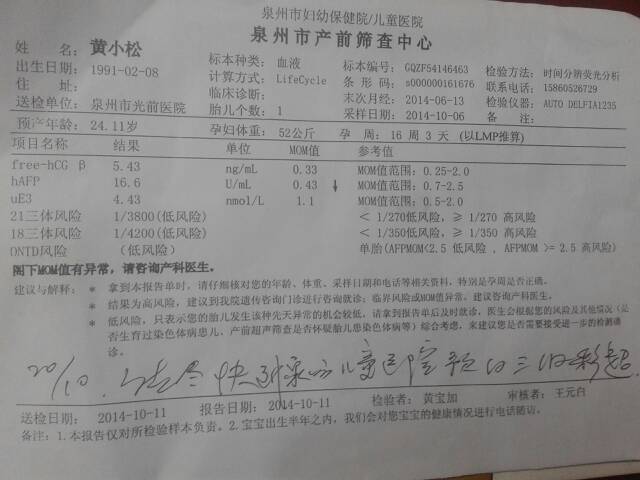 泉州市妇幼保健院/儿童医院
泉州市产前筛查中心
姓 名: 黄小松 标本种类: 血液 标本编号: GQZF54146463 检验方法: 时间分辨荧光分析
出生日期: 1991-02-08 计算方式: LifeCycle 条 形 码: s000000161676 联系电话: 15860526729
住 址: 临床诊断: 末次月经: 2014-06-13 检验仪器: AUTO DELFIA1235
送检单位: 泉州市光前医院 胎儿个数: 1 采样日期: 2014-10-06 备 注:
预产年龄: 24.11岁 孕妇体重: 52公斤 孕 周: 16 周 3 天 (以LMP推算)
项目名称 结果 单位 MOM值 参考值
free-hCG β 5.43 ng/mL 0.33 MOM值范围: 0.25-2.0
hAFP 16.6 U/mL 0.43 ↓ MOM值范围: 0.7-2.5
uE3 4.43 nmol/L 1.1 MOM值范围: 0.5-2.0
21三体风险 1/3800(低风险) < 1/270低风险, ≥ 1/270 高风险
18三体风险 1/4200(低风险) < 1/350低风险, ≥ 1/350 高风险
ONTD风险 (低风险) 单胎(AFPMOM<2.5 低风险 , AFPMOM >= 2.5 高风险)
阁下MOM值有异常, 请咨询产科医生。
建议与解释: * 拿到本报告单时, 请仔细核对您的年龄、体重、采样日期和电话等相关资料, 特别是孕周是否正确。
* 结果为高风险, 建议到我院遗传咨询门诊进行咨询就诊; 临界风险或MOM值异常, 建议咨询产科医生。
* 低风险, 只表示您的胎儿发生该种先天异常的机会较低, 请拿到报告单后及时就诊, 医生会根据您的风险及其他情况 (是
否生育过染色体病患儿、产前超声筛查是否怀疑胎儿患染色体病等) 综合考虑, 来建议您是否需要接受进一步的检测确
诊。
20/10.
送检日期: 2014-10-11 报告日期: 2014-10-11 检验者: 黄宝加 审核者: 王元白
备注: 1.本报告仅对所检验样本负责。2.宝宝出生半年之内, 我们会对您宝宝的健康情况进行电话随访。